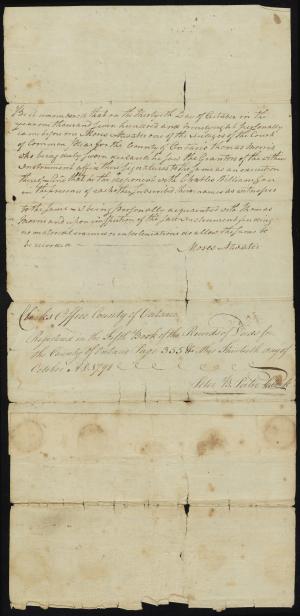 Be it remembered that on the Thirtieth Day of October in the
year one thousand seven hundred and ninety eight personally
came before me Moses Atwater one of the Judges of the Court
of Common Pleas for the County of Ontario Thomas Morris
who being duly sworn saw the Grantors of the within
Instrument affix their signatures to the same as an execution
thereof that he the deponent with Charles Williamson
in the presence of each other subscribed their names as witnesses
to the same & I being personally acquainted with Thomas
Morris and upon inspection of the Instrument finding
no material erasures or interlineations do allow the same to
be recorded
Moses Atwater
Clerks Office County of Ontario
Registered in the Fifth Book of the Records of Deeds for
the County of Ontario Page 355 &c this Thirtieth day of
October A.D. 1798
Peter B. Porter Clerk